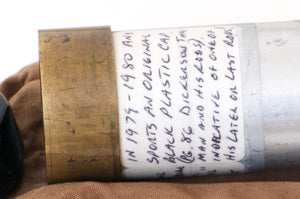 IN 1979-1980 AND
SPORTS AN ORIGINAL
BLACK PLASTIC CAP
(PG. 86 DICKERSON THE
"MAN AND HIS RODS)
INDICATIVE OF ONE OF
HIS LATER OR LAST RODS